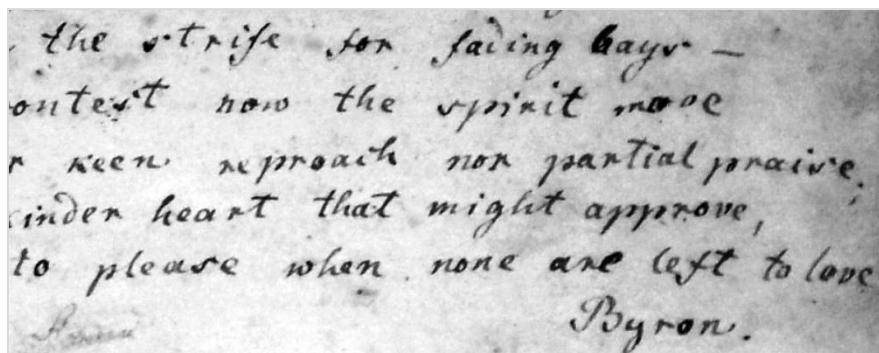 the strife for fading bays —
ontest now the spirit move
r keen reproach nor partial praise;
inder heart that might approve,
to please when none are left to love
Byron.